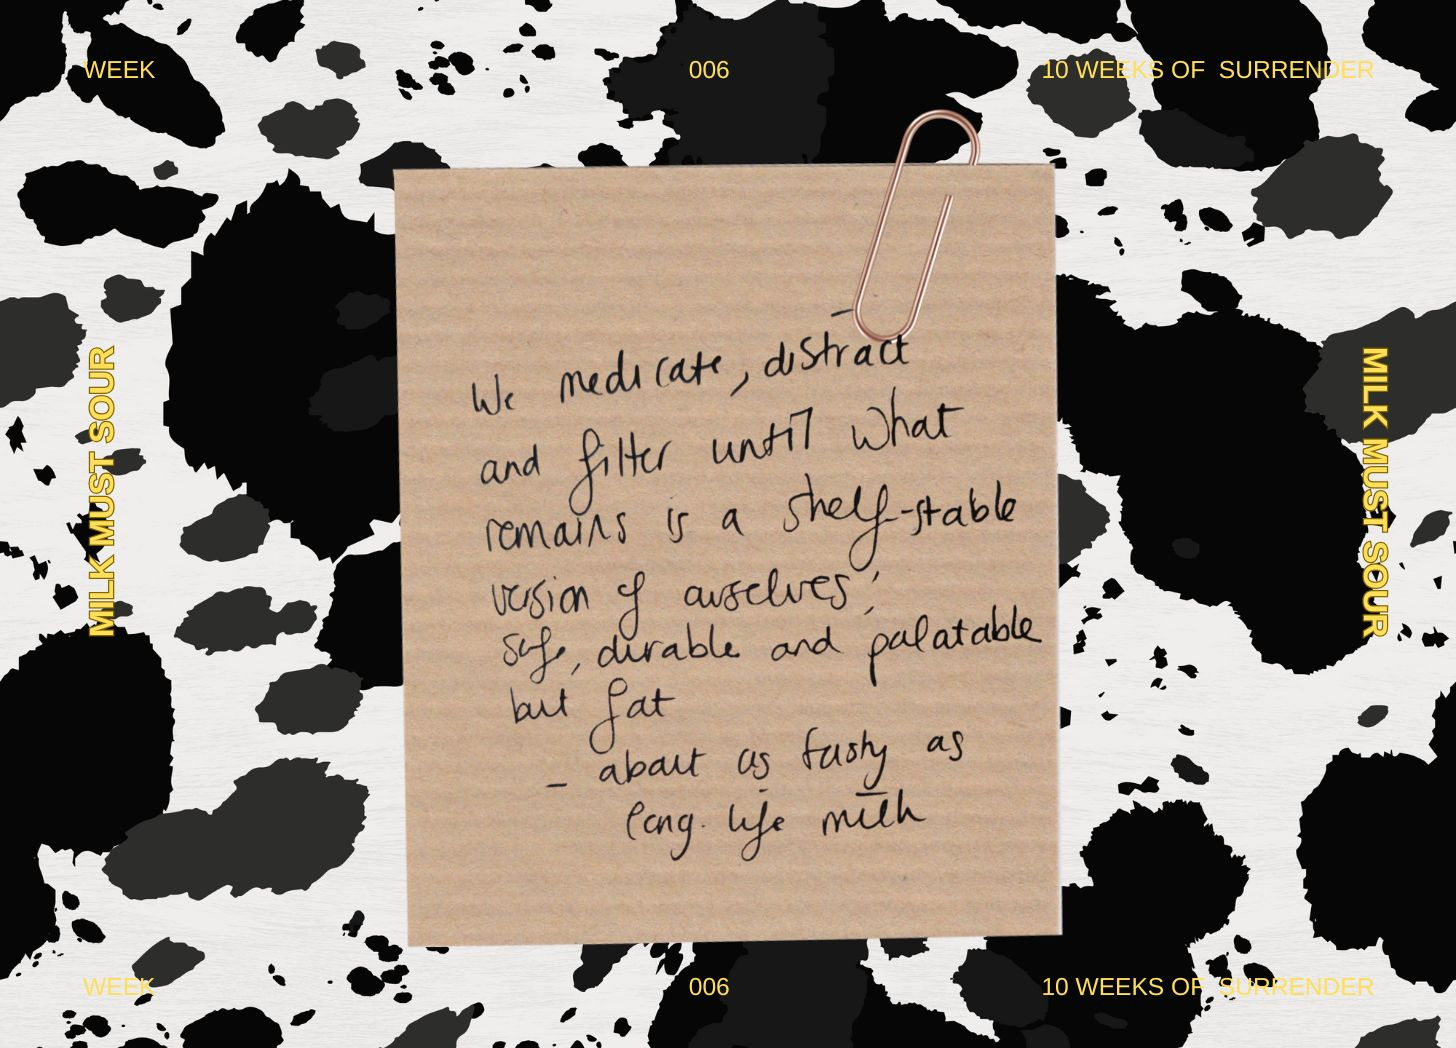 WEEK 006 10 WEEKS OF SURRENDER
MILK MUST SOUR
We medicate, distract
and filter until what
remains is a shelf-stable
version of ourselves;
safe, durable and palatable
but fat
– about as tasty as
long-life milk
MILK MUST SOUR
WEEK 006 10 WEEKS OF SURRENDER